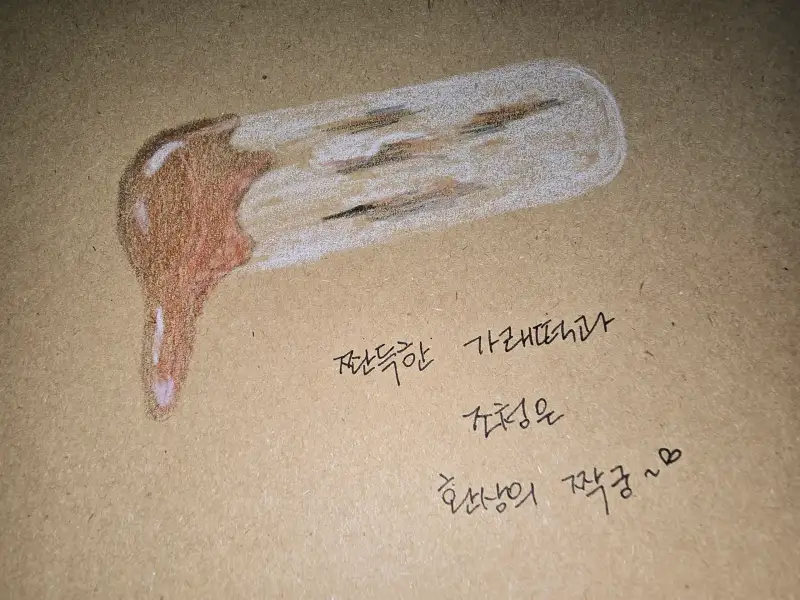 짠득한 가래떡과
조청은
환상의 짝궁~♡